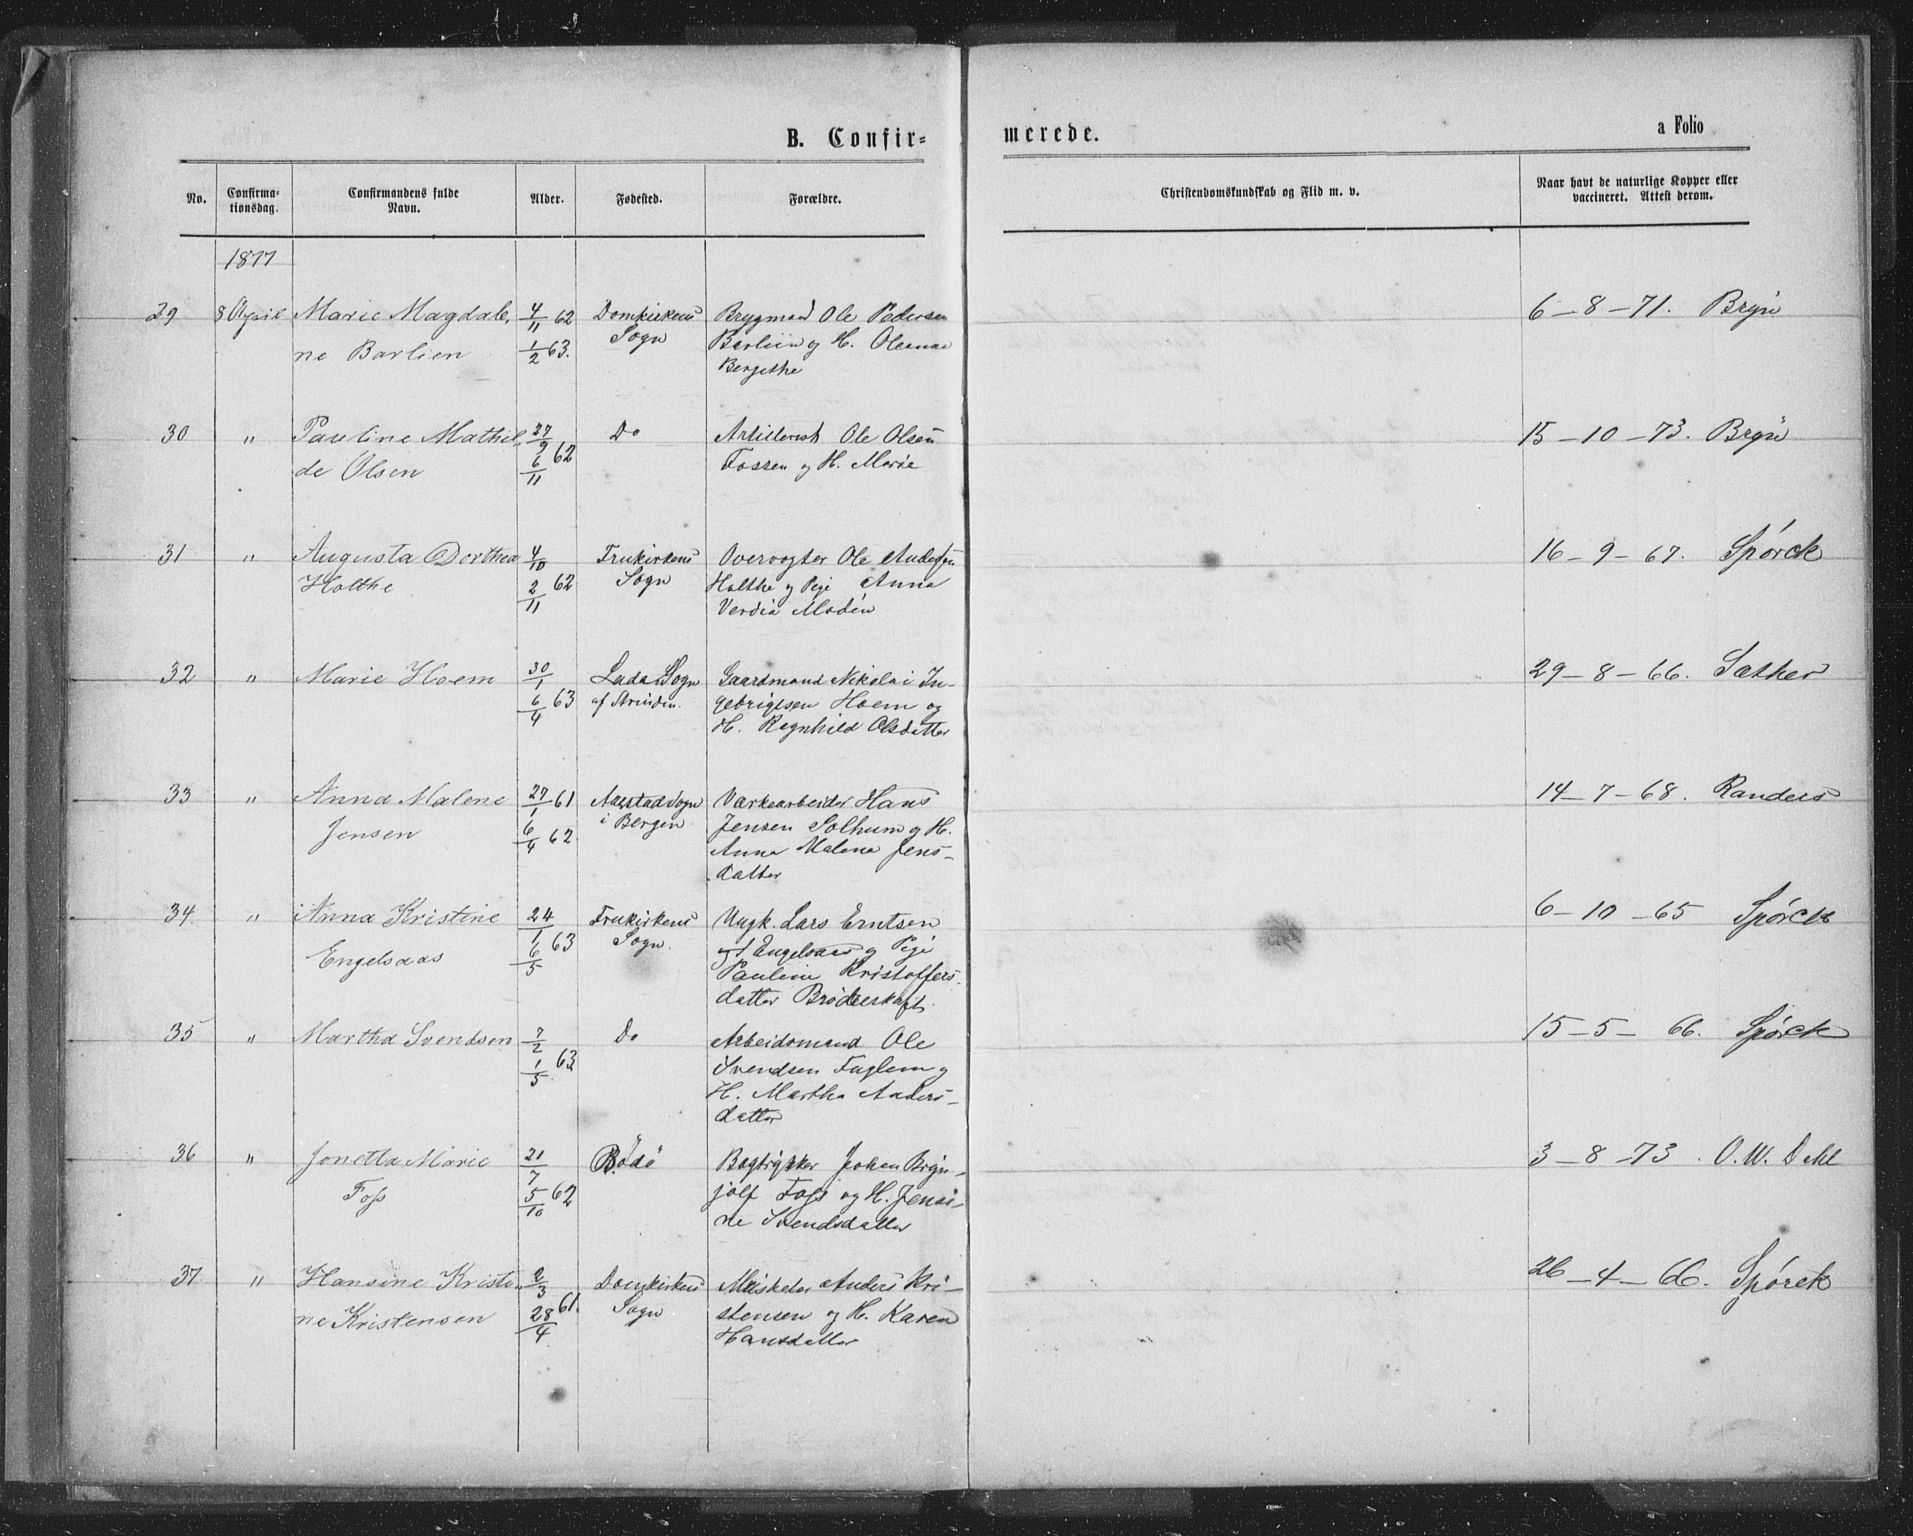 B. Confir=
merede.
a Folio
No.
Confirma-
tionsdag.
Confirmandens fulde
Navn.
Alder.
Fødested.
Forældre.
Christendomskundskab og Flid m. v.
Naar havt de naturlige Kopper eller
vaccineret. Attest derom.
1877
29 8 April Marie Magdale, 4/11 62 Domkirkens Brygmand Ole Pedersen 6-8-71. Bryn
ne Barlien 1/2 63. Sogn Barlien og H. Oleanna
Bergithe
30 " Pauline Mathil, 27/9 62 Do Artillerist Ole Olsen 15-10-73. Bryn
de Olsen 6/11 Fossen og H. Marie
31 " Augusta Dorthea 4/10 Frukirkens Overvogter Ole Andersen 16-9-67. Spörck
Holthe 2/11 62 Sogn Holthe og Pige Anna
Verdia Modén
32 " Marie Hoem 30/1 Lade Sogn Gaardmand Nikolai In- 29-8-66. Sæther
6/4 63 af Strinden. gebrigtsen Hoem og
H. Ragnhild Olsdatter
33 " Anna Malene 27/1 61 Aarstad Sogn Værkearbeider Hans 14-7-68. Randers
Jensen 6/4 62 i Bergen Jensen Solhum og H.
Anna Malena Jens-
datter
34 " Anna Kristine 24/1 Frukirkens Ungk. Lars Erntsen 6-10-65 Spörck
Engelsaas 6/5 63 Sogn. Engelsaas og Pige
Pauline Kristoffers-
datter Bröderskaft.
35 " Martha Svendsen 7/2 Do Arbeidsmand Ole 15-5-66. Spörck
1/5 63 Svendsen Fuglem og
H. Martha Anders-
datter
36 " Jonetta Marie 21/7 Bödö Bogtrykker Johan Bryn- 3-8-73. O. W. Dahl
Foss 5/10 62 jolf Foss og H. Jensi-
ne Svendsdatter
37 " Hansine Kristi- 2/3 Domkirkens Anders Kri- 26-4-66. Spörck
ne Kristensen 28/4 61. Sogn stensen og H. Karen
Hansdatter